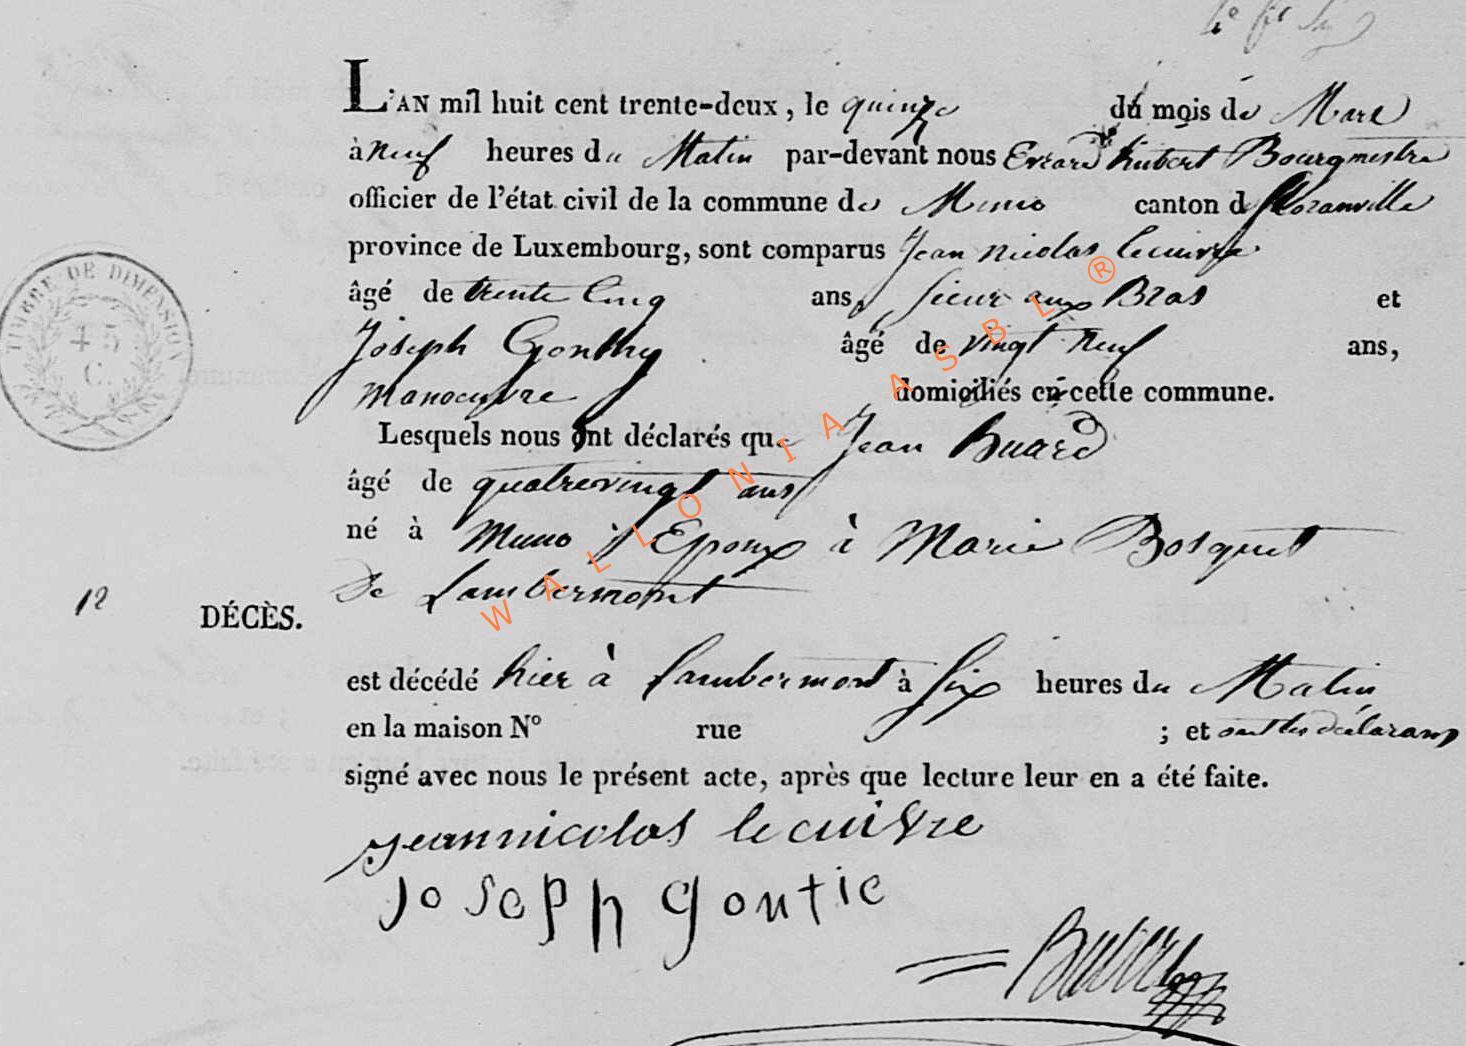 L'AN mil huit cent trente-deux, le quinze du mois de Mars
à neuf heures du Matin par-devant nous Evrard hubert Bourgmestre
officier de l'état civil de la commune de Muno canton de florenville
province de Luxembourg, sont comparus Jean nicolas lecuivre
âgé de trente Cinq ans, sieur aux Bras et
Joseph Gonthy âgé de vingt neuf ans,
manoeuvre domiciliés en cette commune.
Lesquels nous ont déclarés que Jean huard
âgé de quatrevingt ans
né à Muno Epoux à Marie Bosquet
De Lambermont
12
DÉCÈS.
est décédé hier à Lambermont à six heures du Matin
en la maison N° rue ; et ont les déclarans
signé avec nous le présent acte, après que lecture leur en a été faite.
jean nicolas lecuivre
joseph gontie
TIMBRE DE DIMENSION
45
C.
WALLONIA ASBL ®